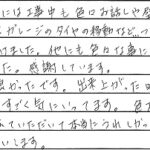 には工事中も色々お話しや
ガレージのタイヤの移動など
けました。他にも色々な事に
た。感謝しています。
良かったです。出来上がった
すごく気にいってます。色
ていただいて本当にうれしかっ
いします。